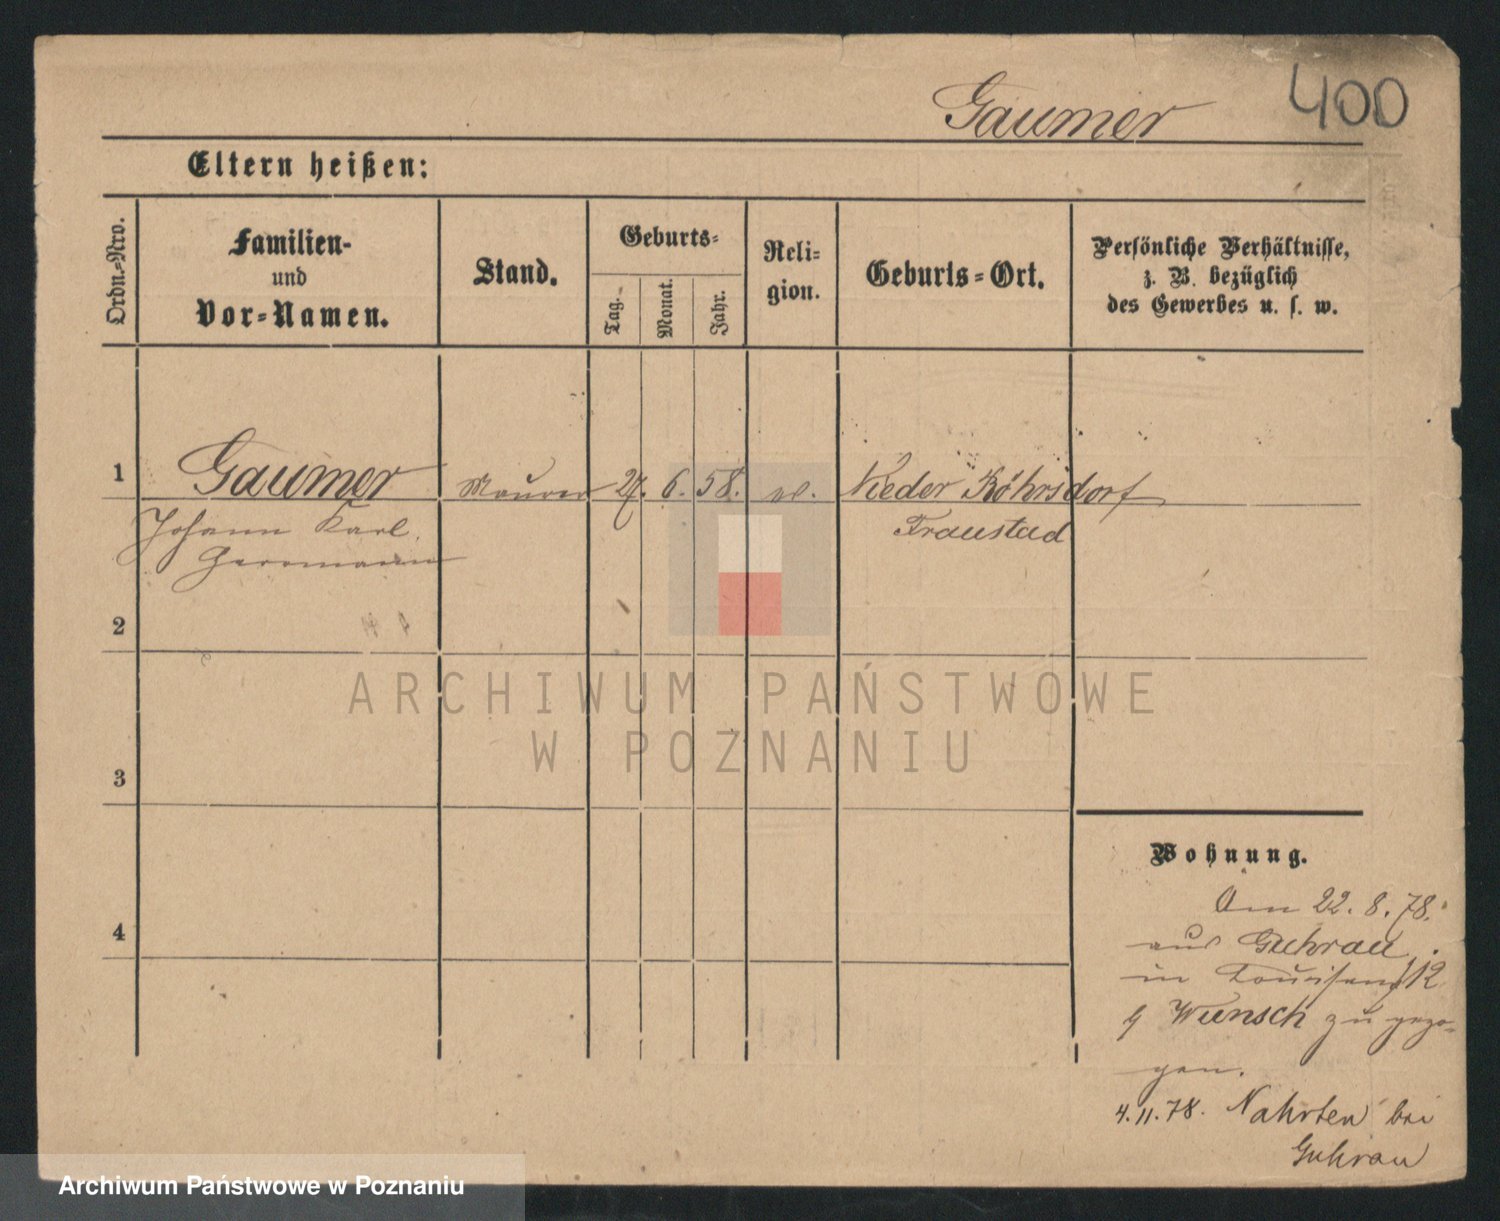 400
Gaumer
Eltern heißen:
Ordn.-Nro.
Familien-
und
Vor-Namen.
Stand.
Geburts-
Tag.
Monat.
Jahr.
Reli-
gion.
Geburts-Ort.
Persönliche Verhältnisse,
z. B. bezüglich
des Gewerbes u. s. w.
1
Gaumer Maurer 27. 6. 58. ev. Nieder Röhrsdorf
Johann Karl Fraustad
Herrmann
2
3
4
Wohnung.
Am 22. 8. 78.
aus Guhrau
in Louisen 12
Wunsch zu gezo-
gen.
4.11.78. Nahrten bei
Guhrau
ARCHIWUM PAŃSTWOWE
W POZNANIU
Archiwum Państwowe w Poznaniu